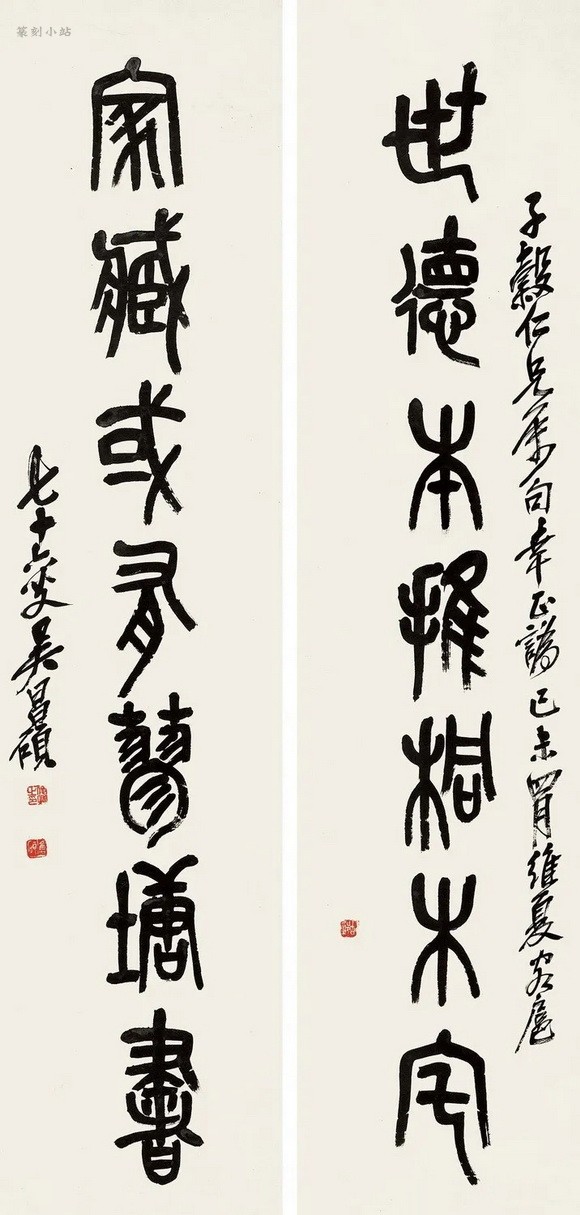 篆刻小站
世德本推桐木宅
子穀仁兄屬句幸正譌己未四月維夏客扈
家藏或有蓼塘書
七十六叟吳昌碩